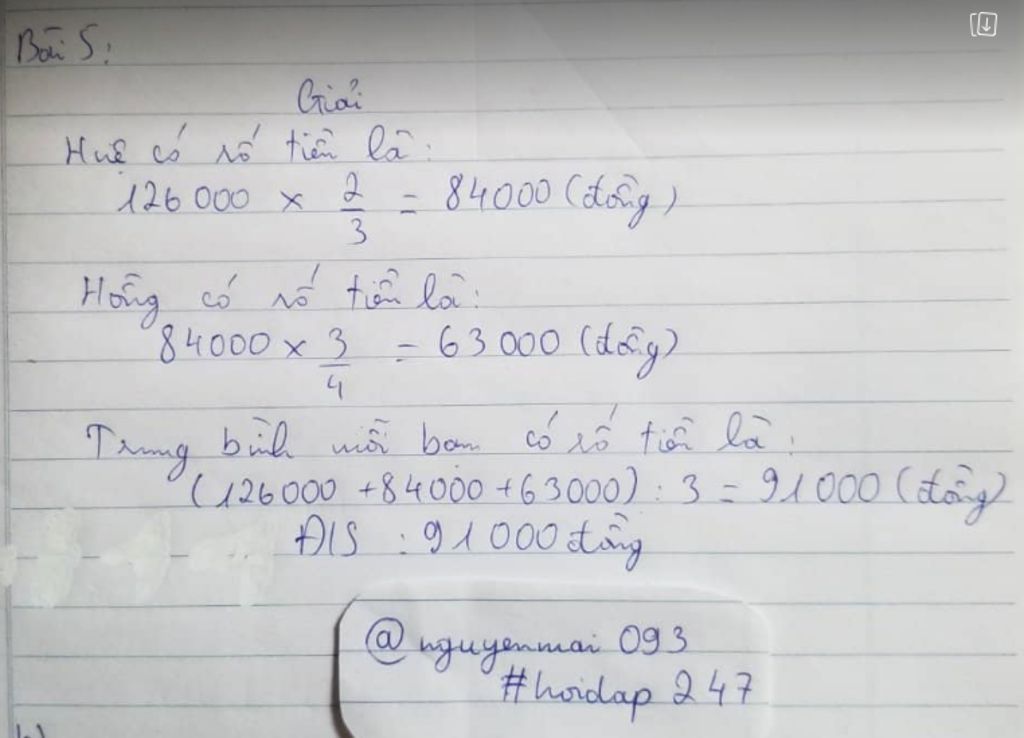 Bài 5:
Giải
Huệ có số tiền là:
126 000 × 2/3 = 84000 (đồng)
Hồng có số tiền là:
84000 × 3/4 = 63 000 (đồng)
Trung bình mỗi bạn có số tiền là:
(126000 + 84000 + 63000) : 3 = 91 000 (đồng)
Đ/S : 91 000 đồng
@nguyenmai 093
#hoidap 247